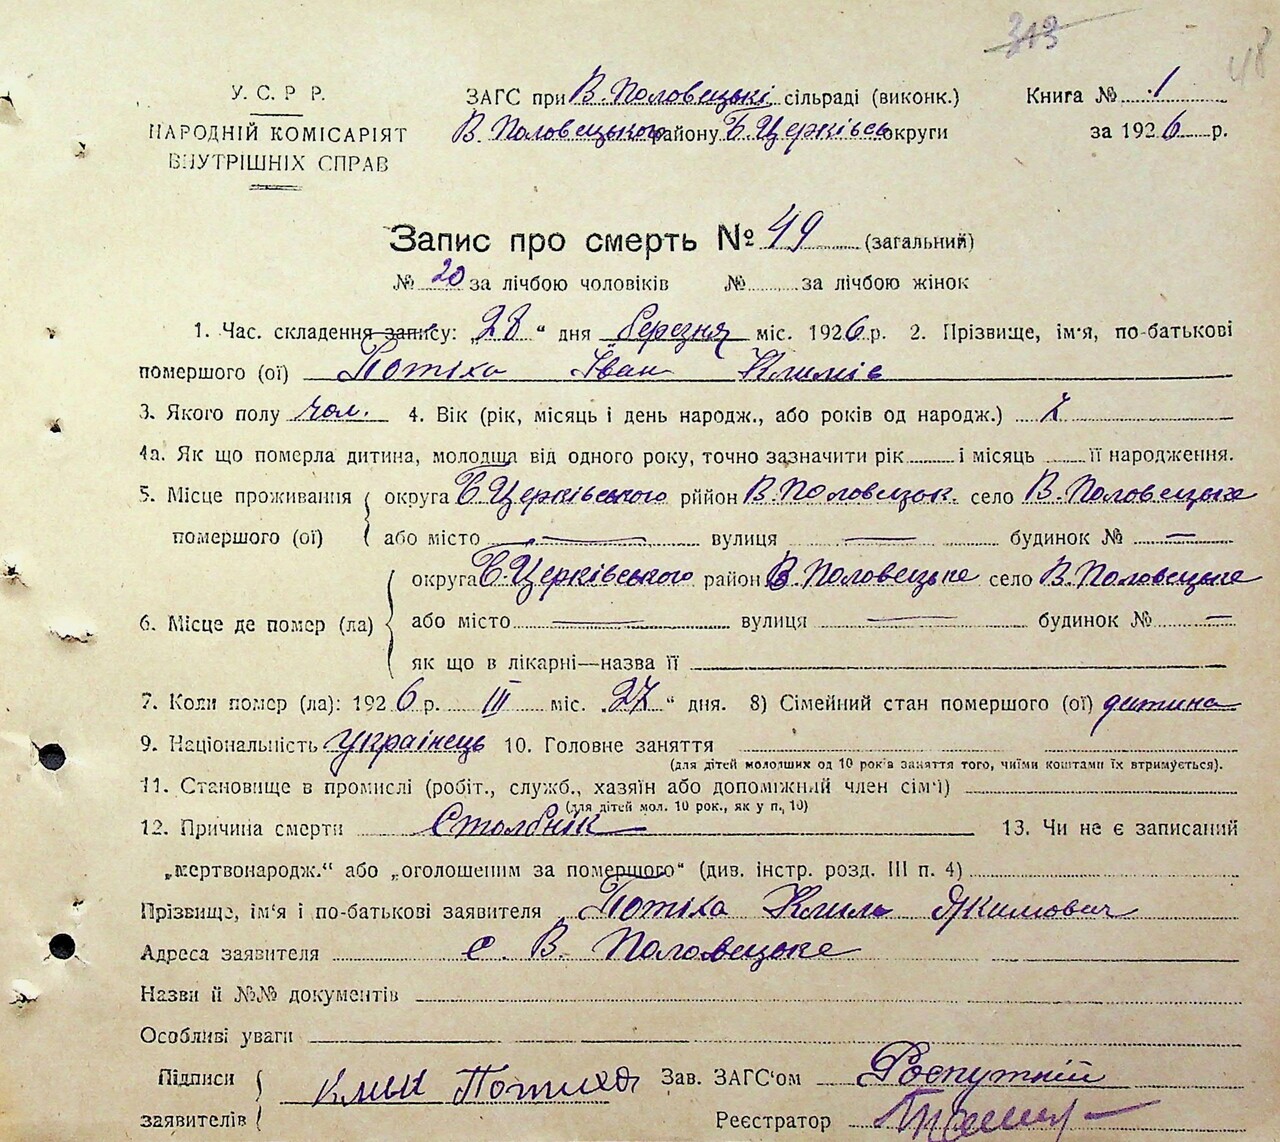 313
48
У. С. Р Р.
НАРОДНІЙ КОМІСАРІЯТ
ВНУТРІШНІХ СПРАВ
ЗАГС при В. Половецькі сільраді (виконк.)
В. Половецького району Б. Церківсь округи
Книга № 1
за 1926 р.
Запис про смерть № 49 (загальний)
№ 20 за лічбою чоловіків № за лічбою жінок
1. Час. складення запису: „28“ дня березня міс. 1926 р. 2. Прізвище, ім'я, по-батькові
помершого (ої) Потіха Іван Климів
3. Якого полу чол. 4. Вік (рік, місяць і день народж., або років од народж.)
4а. Як що померла дитина, молодша від одного року, точно зазначити рік і місяць її народження.
5. Місце проживання помершого (ої) округа Б. Церківського рййон В. Половецьк. село В. Половецьке
або місто — вулиця — будинок № —
6. Місце де помер (ла) округа Б. Церківського район В. Половецьке село В. Половецьке
або місто — вулиця — будинок № —
як що в лікарні—назва її
7. Коли помер (ла): 1926 р. III міс. „27“ дня. 8) Сімейний стан помершого (ої) дитина
9. Національність Українець 10. Головне заняття
(для дітей молодших од 10 років заняття того, чиїми коштами їх втримується).
11. Становище в промислі (робіт., служб., хазяїн або допоміжний член сім'ї)
(для дітей мол. 10 рок., як у п. 10)
12. Причина смерти Столбнік 13. Чи не є записаний
„мертвонародж.“ або „оголошеним за помершого“ (див. інстр. розд. III п. 4)
Прізвище, ім'я і по-батькові заявителя Потіха Клим Якимович
Адреса заявителя с В. Половецьке
Назви й №№ документів
Особливі уваги
Підписи заявителів Клим Потиха Зав. ЗАГС'ом Роспутній
Реєстратор